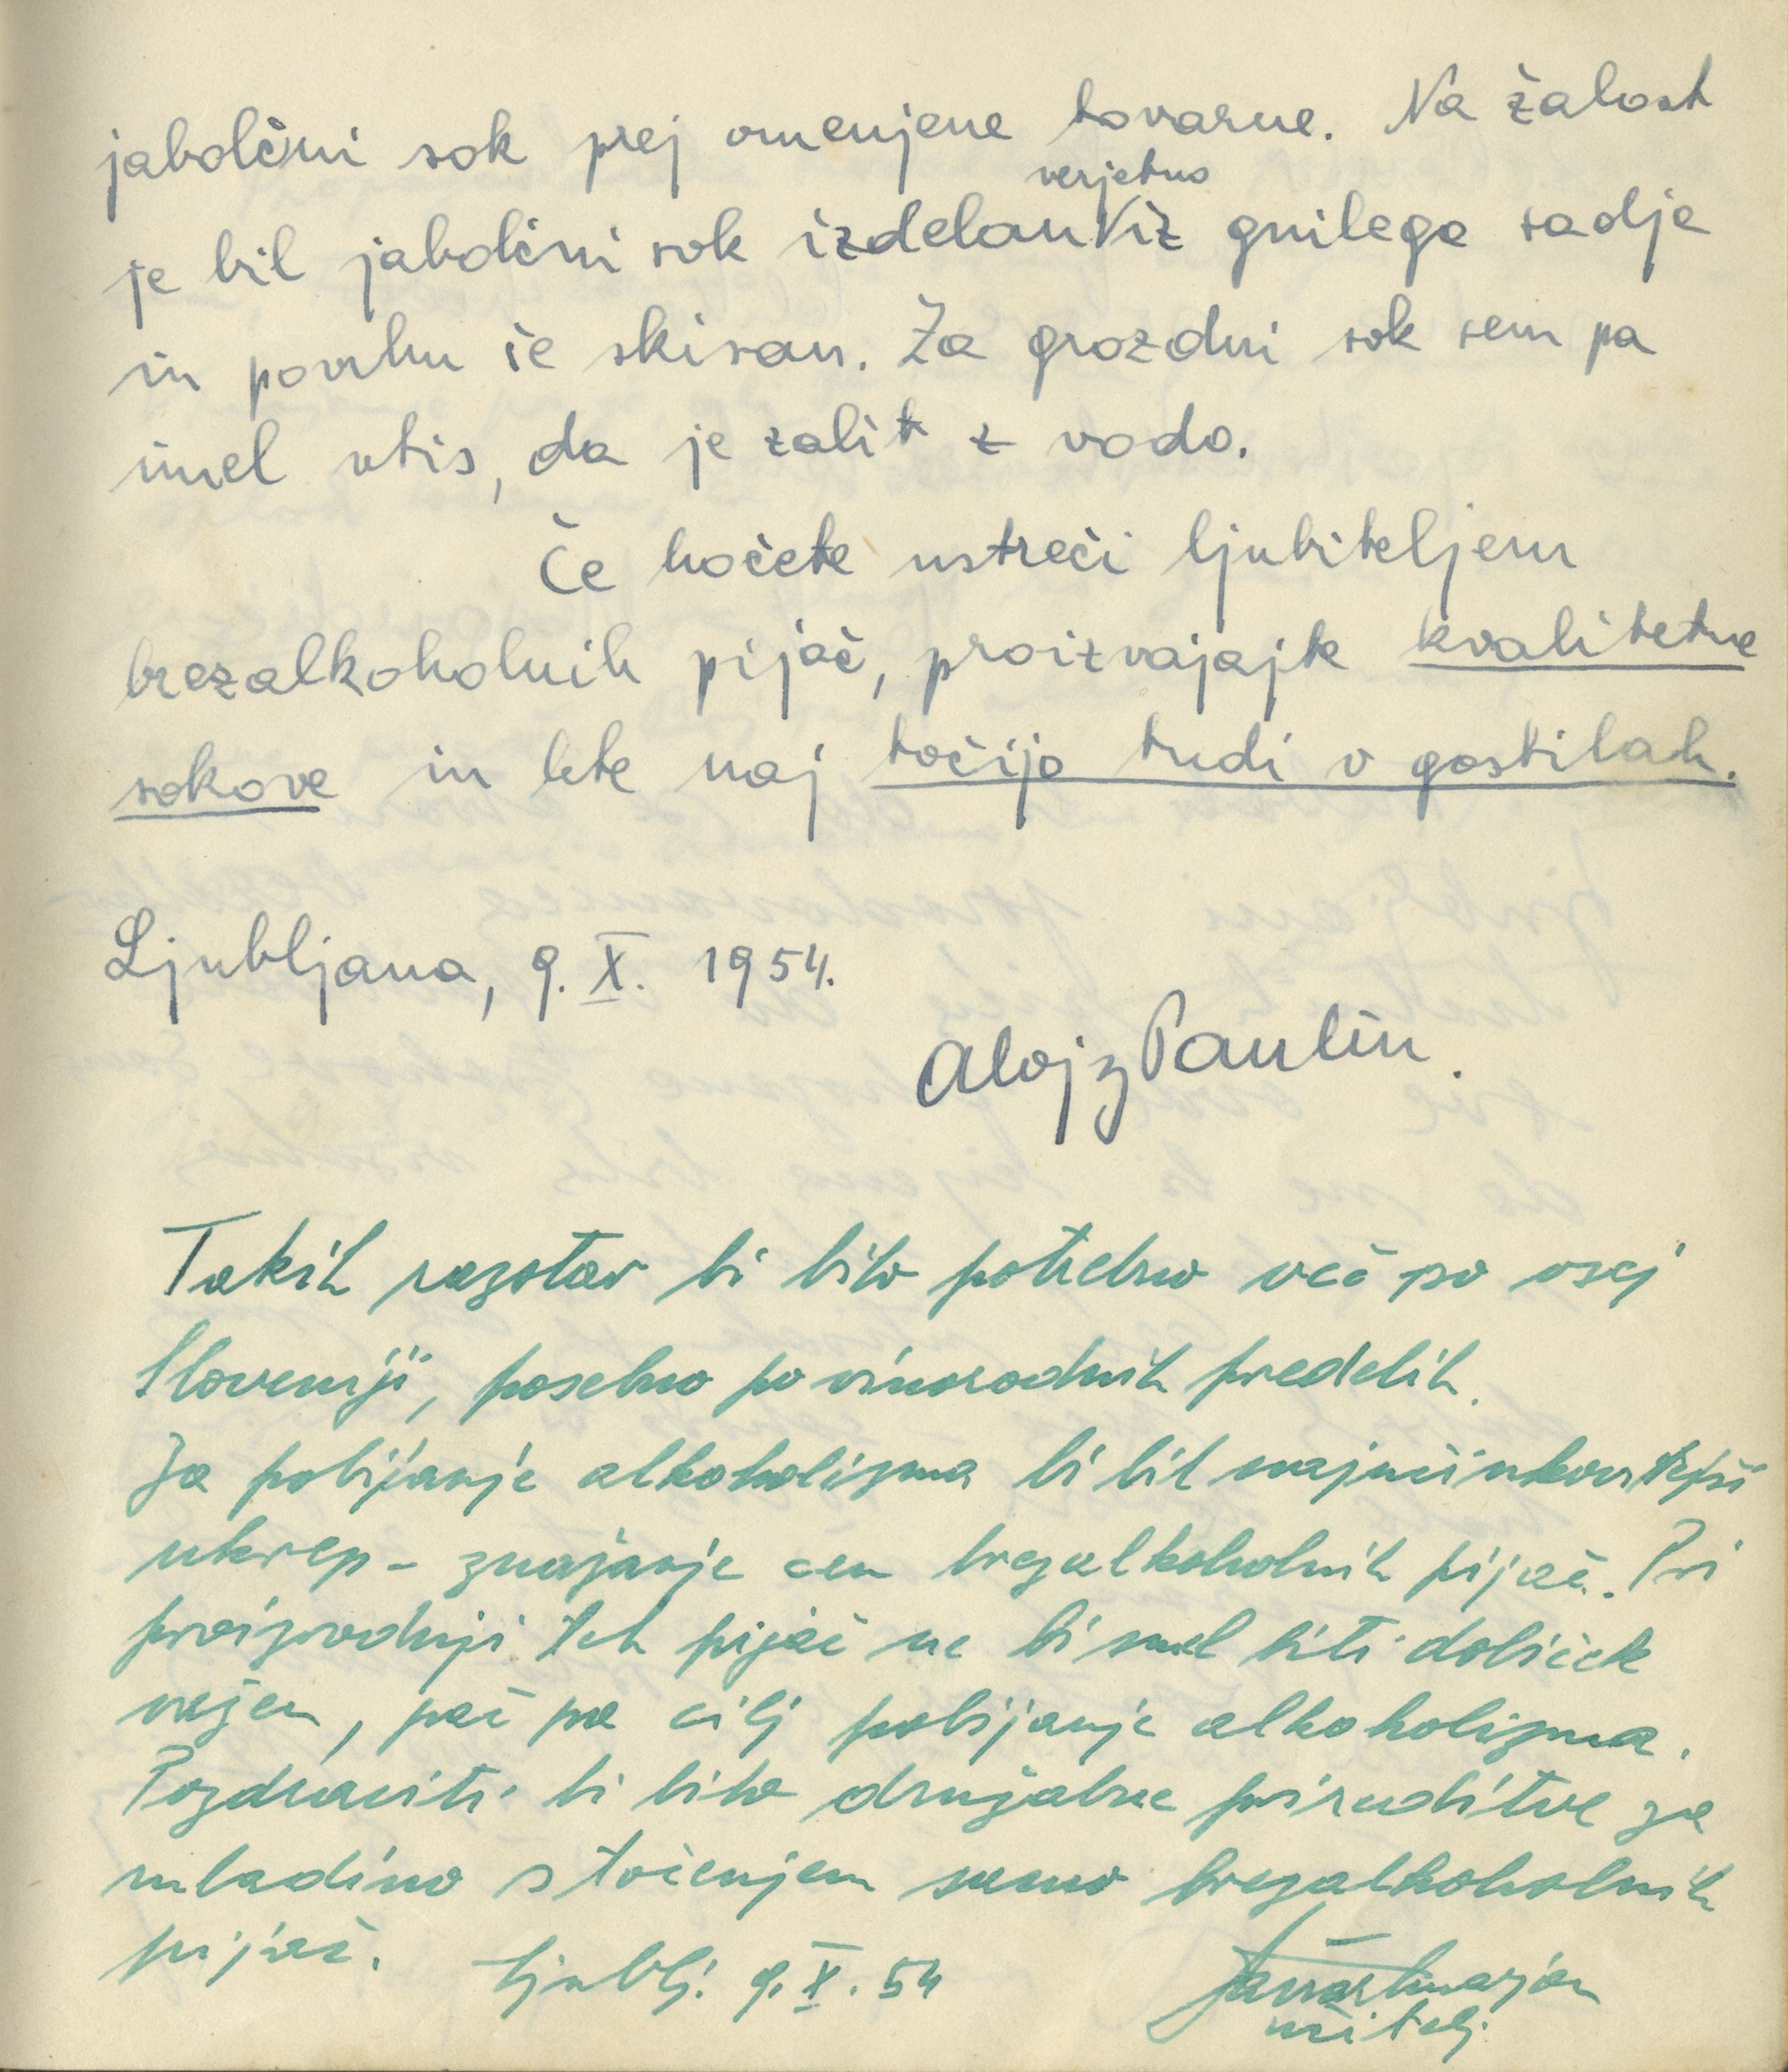 jabolčni sok prej omenjene tovarne. Na žalost
verjetno
je bil jabolčni sok izdelan iz gnilega sadja
in povrhu še skisan. Za grozdni sok sem pa
imel vtis, da je zalit z vodo.
Če hočete ustreči ljubiteljem
brezalkoholnih pijač, proizvajajte kvalitetne
sokove in lete naj točijo tudi v gostilah.
Ljubljana, 9. X. 1954.
Alojz Paulin.
Takih razstav bi bilo potrebno več po vsej
Sloveniji, posebno po vinorodnih predelih.
Za pobijanje alkoholizma bi bil najučinkovitejši
ukrep - znižanje cen brezalkoholnih pijač. Pri
proizvodnji teh pijač ne bi smel biti dobiček
važen, pač pa cilj pobijanje alkoholizma.
Pozdraviti bi bilo družabne prireditve za
mladino s točenjem samo brezalkoholnih
pijač. Ljublj. 9. X. 54
Marjan
učitelj.